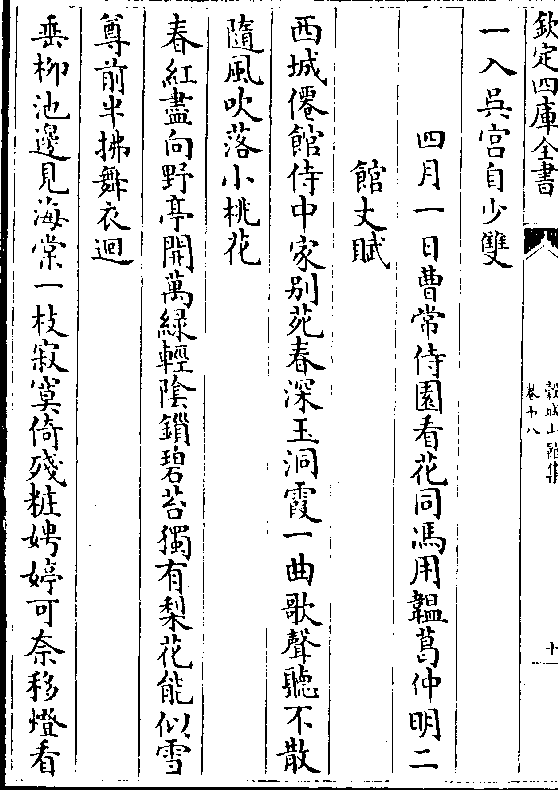 欽定四庫全書
穀城山館集
卷十八
十
一入吳宫自少雙
四月一日曹常侍園看花同馮用韞葛仲明二
館丈賦
西城僊館侍中家别苑春深玉洞霞一曲歌聲聽不散
隨風吹落小桃花
春紅盡向野亭開萬緑輕陰鎖碧苔獨有梨花能似雪
尊前半拂舞衣迴
垂柳池邊見海棠一枝寂寞倚殘粧娉婷可奈移燈看